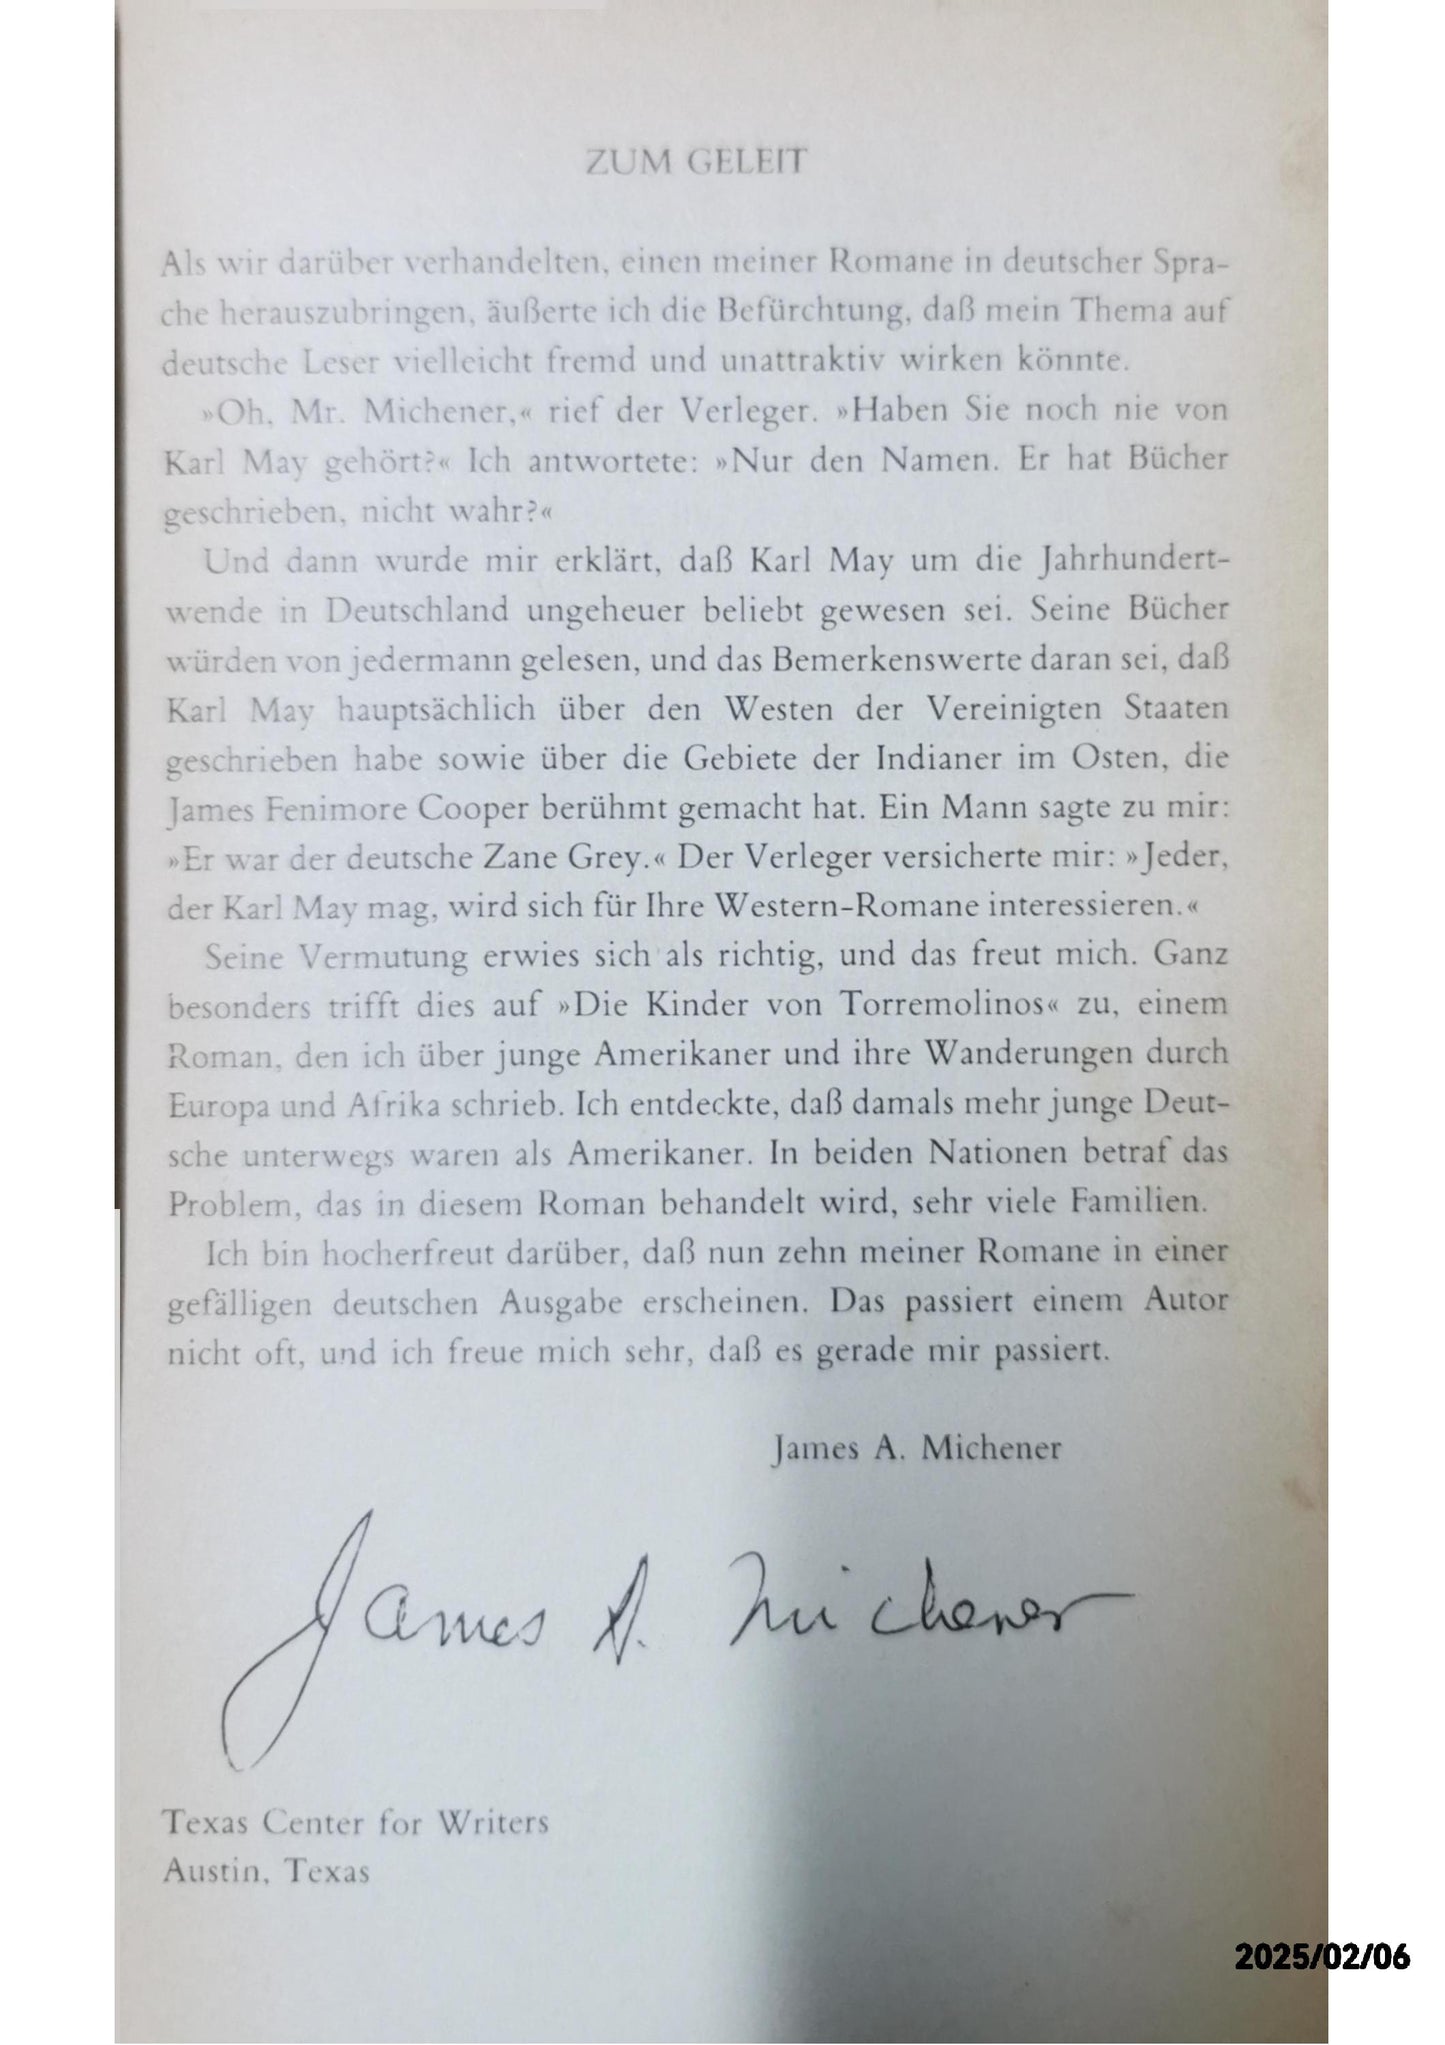 ZUM GELEIT
Als wir darüber verhandelten, einen meiner Romane in deutscher Spra-
che herauszubringen, äußerte ich die Befürchtung, daß mein Thema auf
deutsche Leser vielleicht fremd und unattraktiv wirken könnte.
»Oh, Mr. Michener,« rief der Verleger. »Haben Sie noch nie von
Karl May gehört?« Ich antwortete: »Nur den Namen. Er hat Bücher
geschrieben, nicht wahr?«
Und dann wurde mir erklärt, daß Karl May um die Jahrhundert-
wende in Deutschland ungeheuer beliebt gewesen sei. Seine Bücher
würden von jedermann gelesen, und das Bemerkenswerte daran sei, daß
Karl May hauptsächlich über den Westen der Vereinigten Staaten
geschrieben habe sowie über die Gebiete der Indianer im Osten, die
James Fenimore Cooper berühmt gemacht hat. Ein Mann sagte zu mir:
»Er war der deutsche Zane Grey.« Der Verleger versicherte mir: »Jeder,
der Karl May mag, wird sich für Ihre Western-Romane interessieren.«
Seine Vermutung erwies sich als richtig, und das freut mich. Ganz
besonders trifft dies auf »Die Kinder von Torremolinos« zu, einem
Roman, den ich über junge Amerikaner und ihre Wanderungen durch
Europa und Afrika schrieb. Ich entdeckte, daß damals mehr junge Deut-
sche unterwegs waren als Amerikaner. In beiden Nationen betraf das
Problem, das in diesem Roman behandelt wird, sehr viele Familien.
Ich bin hocherfreut darüber, daß nun zehn meiner Romane in einer
gefälligen deutschen Ausgabe erscheinen. Das passiert einem Autor
nicht oft, und ich freue mich sehr, daß es gerade mir passiert.
James A. Michener
James A. Michener
Texas Center for Writers
Austin, Texas
2025/02/06